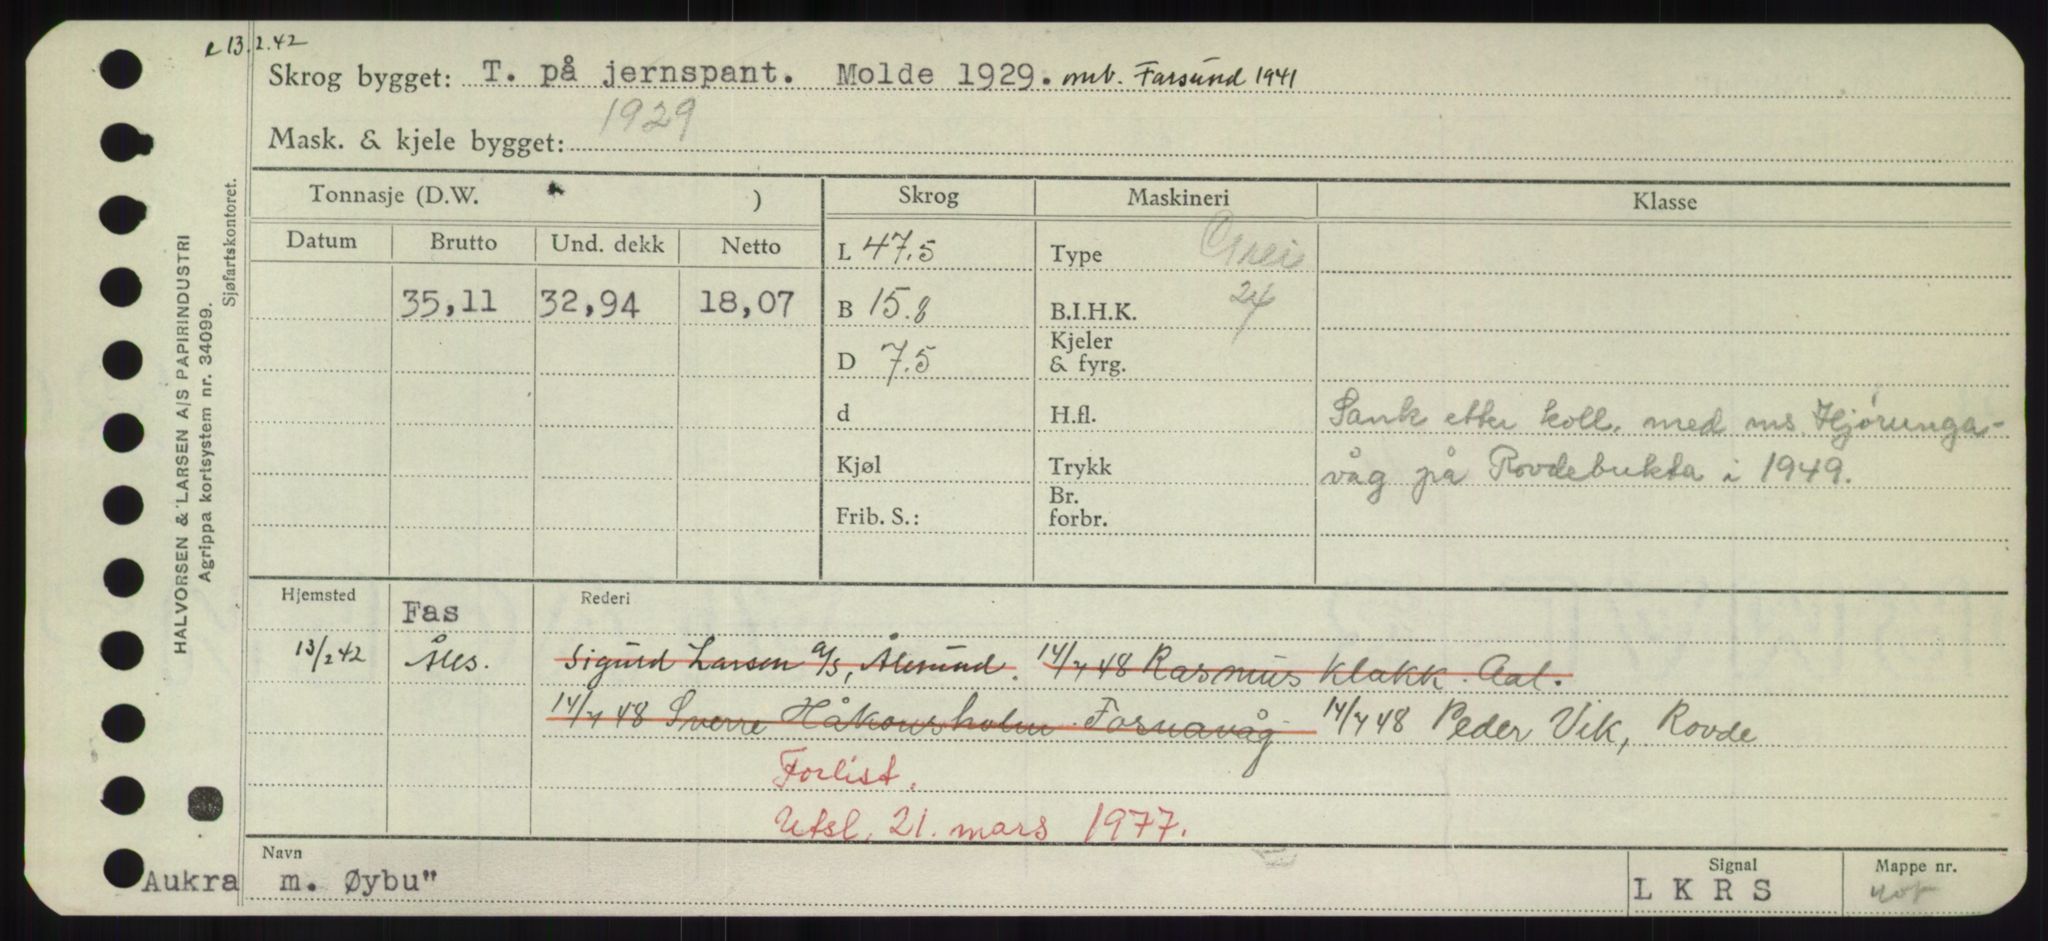 e 13.2.42
Skrog bygget: T. på jernspant. Molde 1929. omb. Farsund 1941
Mask. & kjele bygget: 1929
Tonnasje (D.W. ) Skrog Maskineri Klasse
Datum Brutto Und. dekk Netto L 47.5 Type Grei
35,11 32,94 18,07 B 15.8 B.I.H.K. 24
D 7.5 Kjeler & fyrg.
d H.fl. Sank etter koll. med ms. Hjørunga-
Kjøl Trykk våg på Rovdebukta i 1949.
Frib. S.: Br. forbr.
Hjemsted Fas Rederi
13/2 42 Åles. Sigurd Larsen a/s, Ålesund. 14/7 48 Rasmus Klakk. Aal.
14/7 48 Sverre Håkonsholm Fosnavåg 14/7 48 Peder Vik, Rovde
Forlist.
Utsl. 21. mars 1977.
Navn Signal Mappe nr.
Aukra m. Øybu" L K R S
HALVORSEN & LARSEN A/S PAPIRINDUSTRI
Agrippa kortsystem nr. 34099.
Sjøfartskontoret.